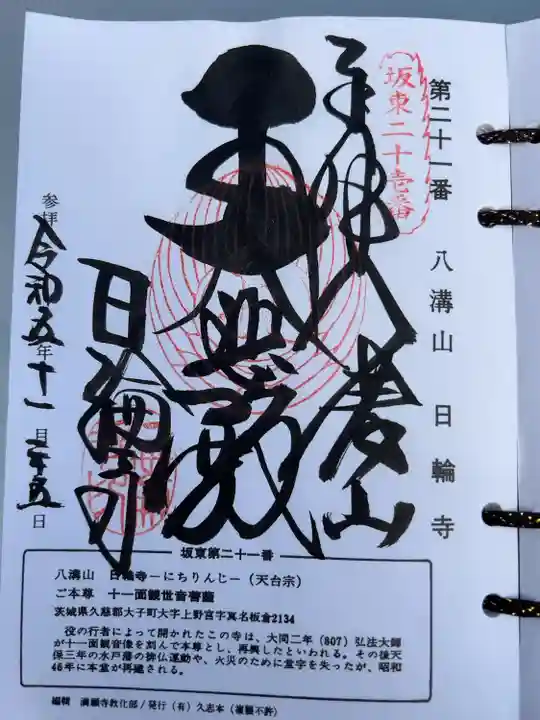 第二十一番 八溝山 日輪寺
坂東二十壱番
奉拝 八溝山
大悲殿
日輪寺
参拝 令和五年十一月二十五日
坂東第二十一番
八溝山 日輪寺ーにちりんじー(天台宗)
ご本尊 十一面観世音菩薩
茨城県久慈郡大子町大字上野宮字真名板倉2134
役の行者によって開かれたこの寺は、大同二年(807)弘法大師
が十一面観音像を刻んで本尊とし、再興したといわれる。その後天
保三年の水戸藩の排仏運動や、火災のために堂宇を失ったが、昭和
46年に本堂が再建される。
編輯 満願寺教化部/発行(有)久志本(複製不許)